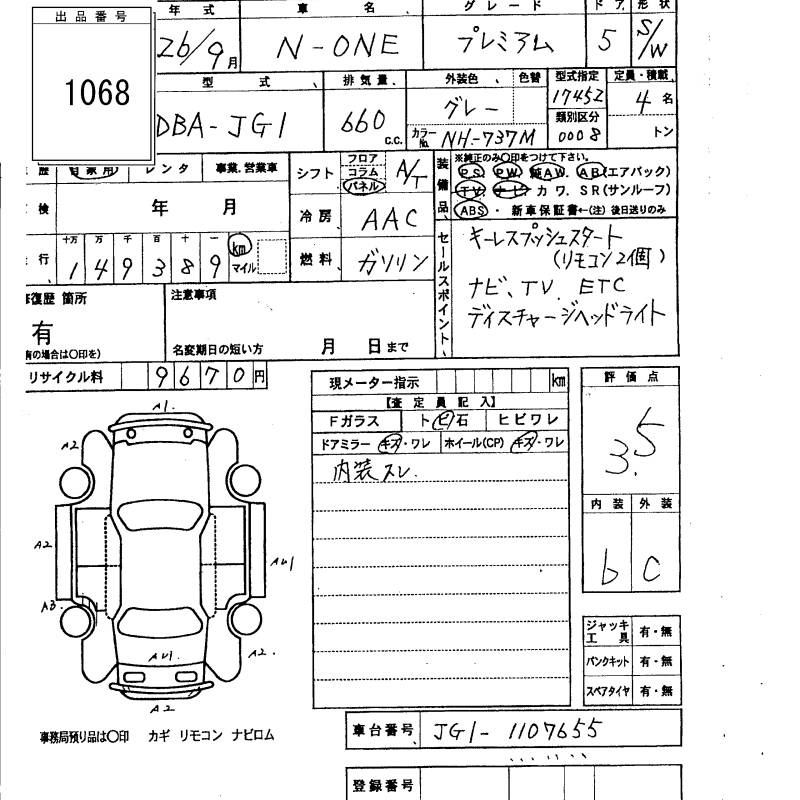 出品番号
1068
年 式 車 名 グレード ドア 形状
26/9月 N-ONE プレミアム 5 S/W
型 式 排気量 外装色 色替 型式指定 定員・積載
DBA-JG1 660 c.c. グレー 17452 4 名
カラーNo. NH-737M 類別区分 0008 トン
歴 自家用 レンタ 事業、営業車
シフト フロア コラム パネル A/T
装備品 ※純正のみ○印をつけて下さい。
PS PW 純AW. AB(エアバック)
TV ナビ カワ. SR(サンルーフ)
ABS・新車保証書←(注)後日送りのみ
検 年 月
冷房 AAC
行 十万 万 千 百 十 一
149389 km マイル
燃料 ガソリン
セールスポイント
キーレスプッシュスタート
(リモコン2個)
ナビ、TV. ETC
ディスチャージヘッドライト
修復歴 箇所
有
有の場合は○印を)
注意事項
名変期日の短い方 月 日まで
リサイクル料 9670円
現メーター指示 km
【査定員記入】
Fガラス トビ石 ヒビワレ
ドアミラー キズ・ワレ ホイール(CP) キズ・ワレ
内装スレ.
評価点
3.5
内装 外装
b C
A1.
A2
A2
A2
AU1
A3.
AU1.
A2.
A2
ジャッキ工具 有・無
パンクキット 有・無
スペアタイヤ 有・無
事務局預り品は○印 カギ リモコン ナビロム
車台番号 JG1-1107655
登録番号